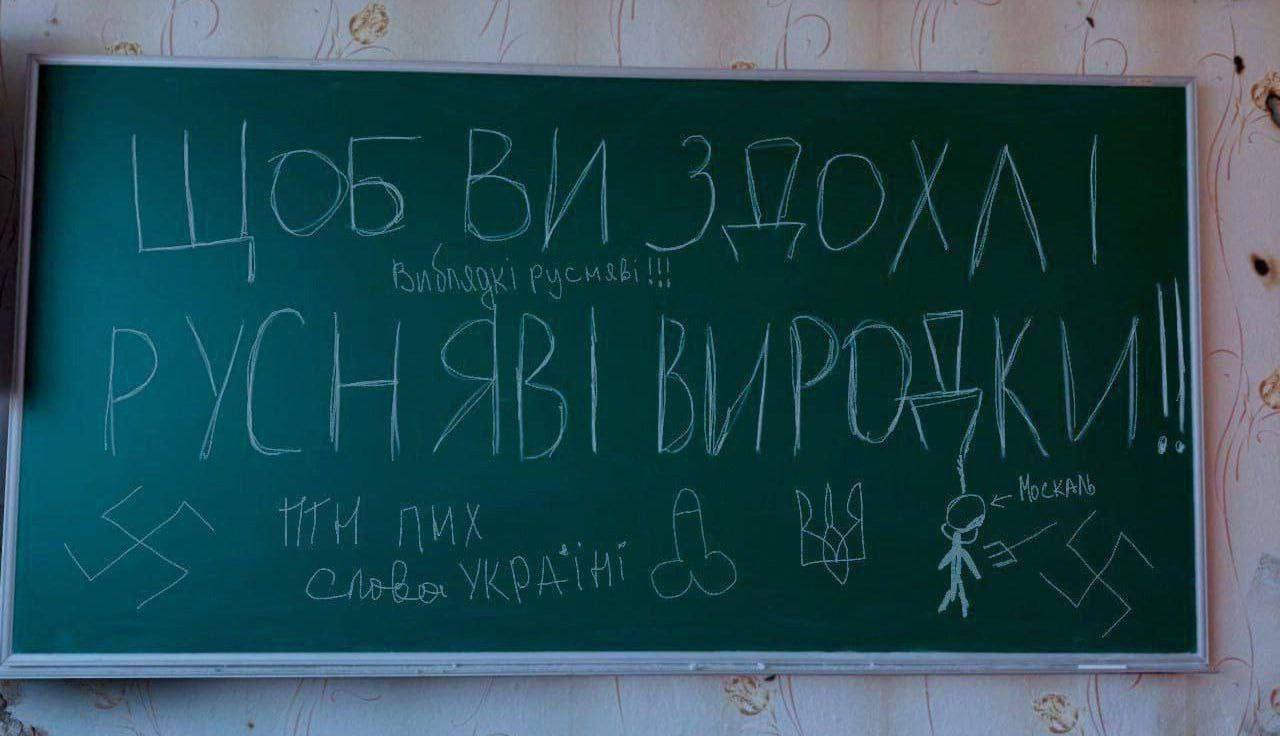 ЩОБ ВИ ЗДОХЛІ
Виблядкі русняві!!!
РУСНЯВІ ВИРОДКИ!!
Москаль
ПТН ПНХ
слова УКРАЇНІ